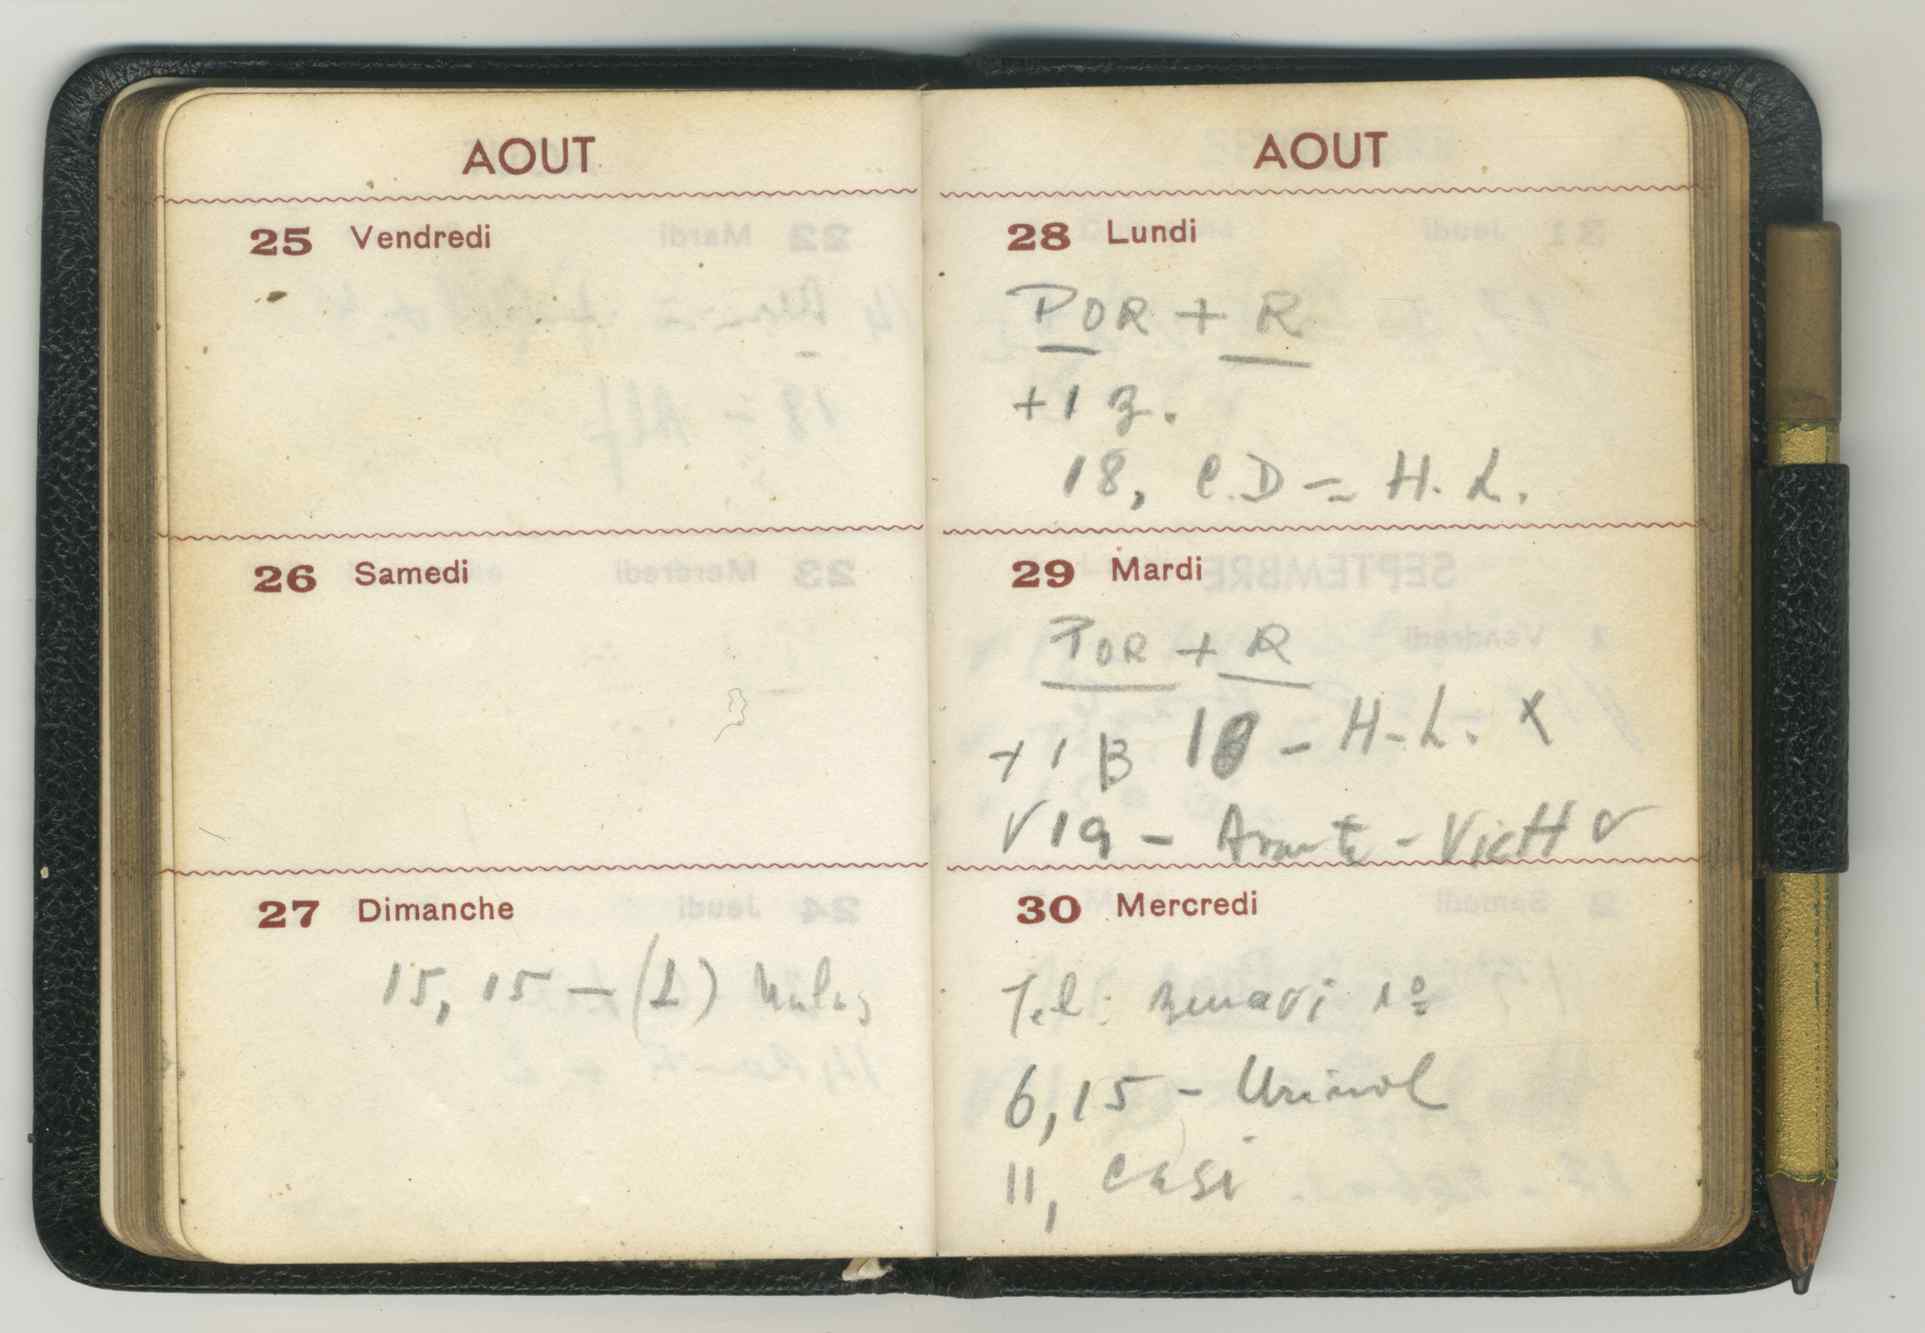 AOUT
25 Vendredi
26 Samedi
27 Dimanche
15, 15 — (L)
AOUT
28 Lundi
POR + R
+1 z.
18, C.D = H. L.
29 Mardi
POR + R
+ 1 B 18 - H-L. X
√ 19 - - Vict H √
30 Mercredi
Tel: 1º
6,15 - Urinol
11, casi